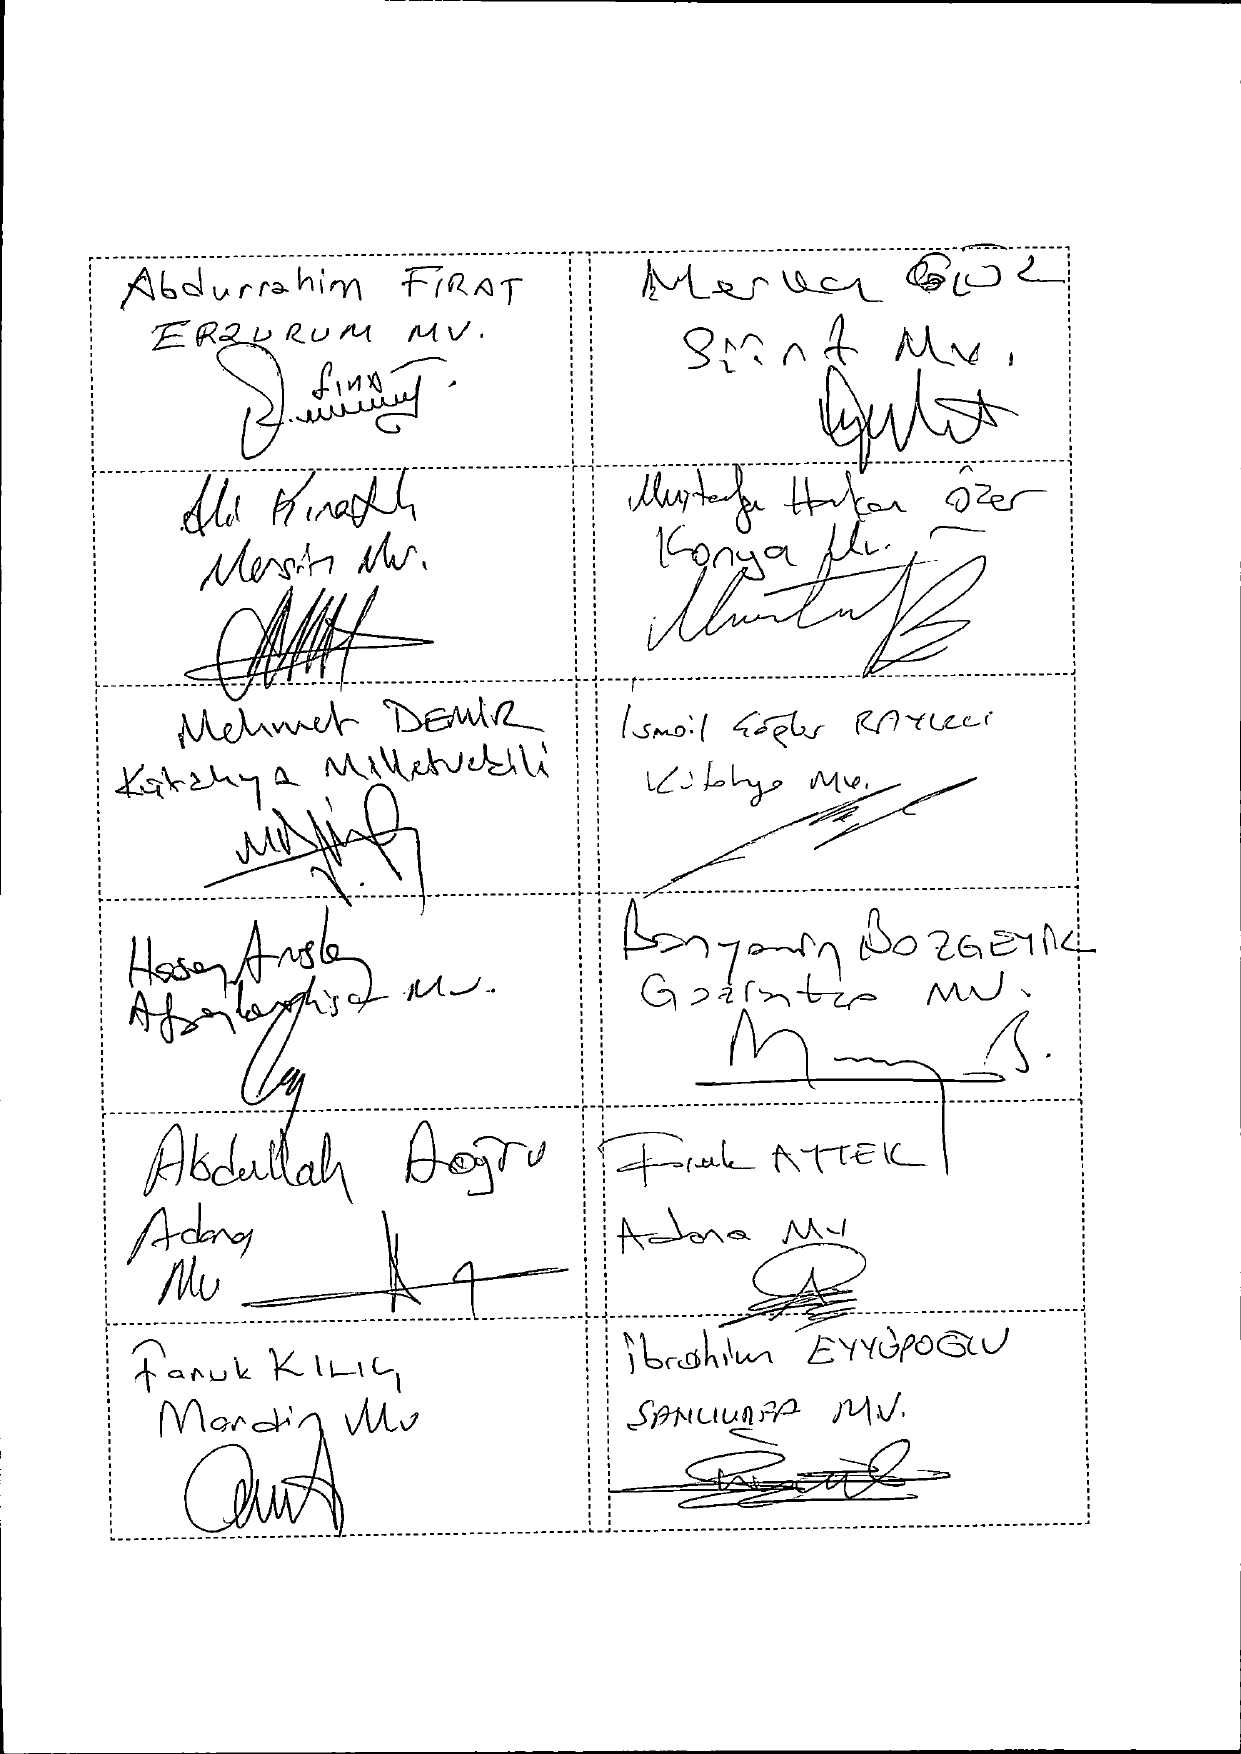 Abdurrahim FIRAT
ERZURUM MV.
Fırat
Merva GÜL
Siirt Mv.
Ali Kıratlı
Mersin Mv.
Mustafa Hakan Özer
Konya Mv.
Mehmet DEMİR
Kütahya Milletvekili
İsmail Çağlar BAYIRCI
Kütahya Mv.
Hasan Arslan
Afyonkarahisar Mv.
Bünyamin BOZGEYİK
Gaziantep MV.
Abdullah Doğru
Adana
Mv
Faruk AYTEK
Adana Mv
Faruk KILIÇ
Mardin Mv
İbrahim EYYÜPOĞLU
ŞANLIURFA MV.